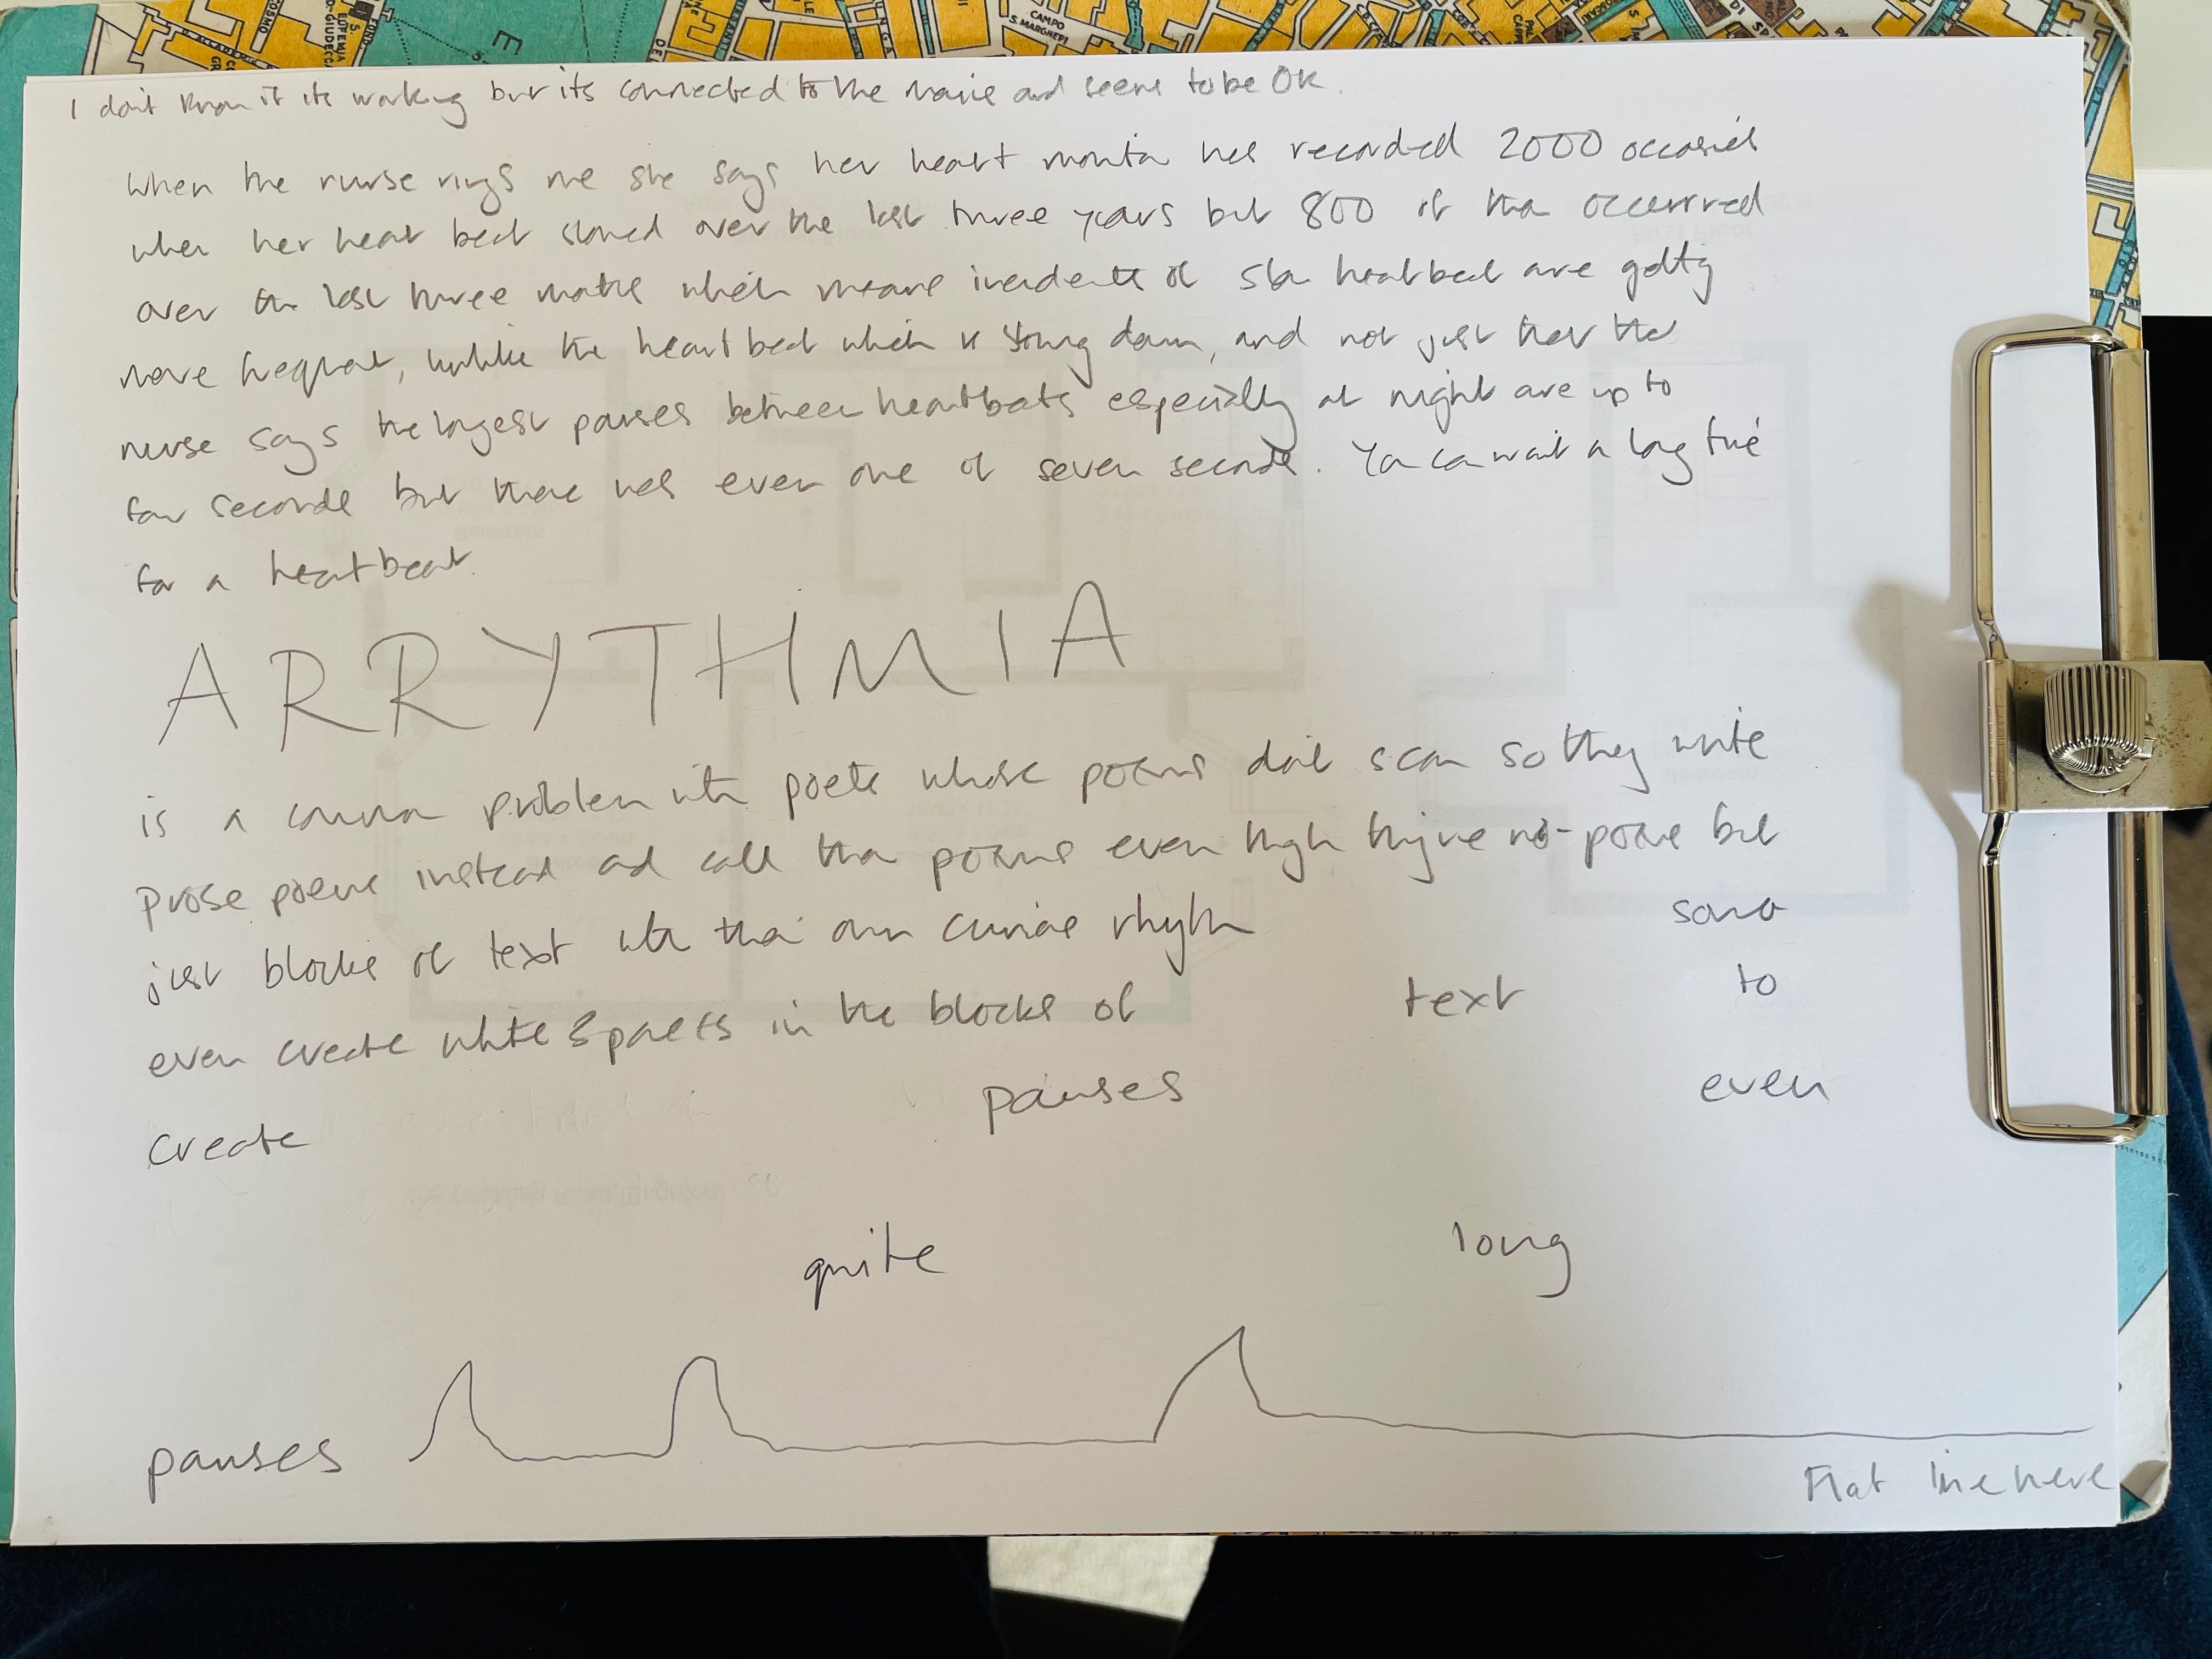 CAMPO
S. MARGHERI
I don't know if its working but its connected to the and seems to be OK.
When the nurse rings me she says her heart monitor has recorded 2000 occasions
when her heart beat slowed over the last three years but 800 of them occurred
over the last three months which means incidents of slow heartbeat are getting
more frequent, unlike the heartbeat which is slowing down, and not just that the
nurse says the longest pauses between heartbeats especially at night are up to
four seconds but there was even one of seven seconds. You can wait a long time
for a heartbeat.
ARRYTHMIA
is a common problem with poets whose poems don't scan so they write
prose poems instead and call them poems even though they're not poems but
just blocks of text with their own curious rhythm some
even create white spaces in the blocks of text to
create pauses even
quite long
pauses
Flat line here